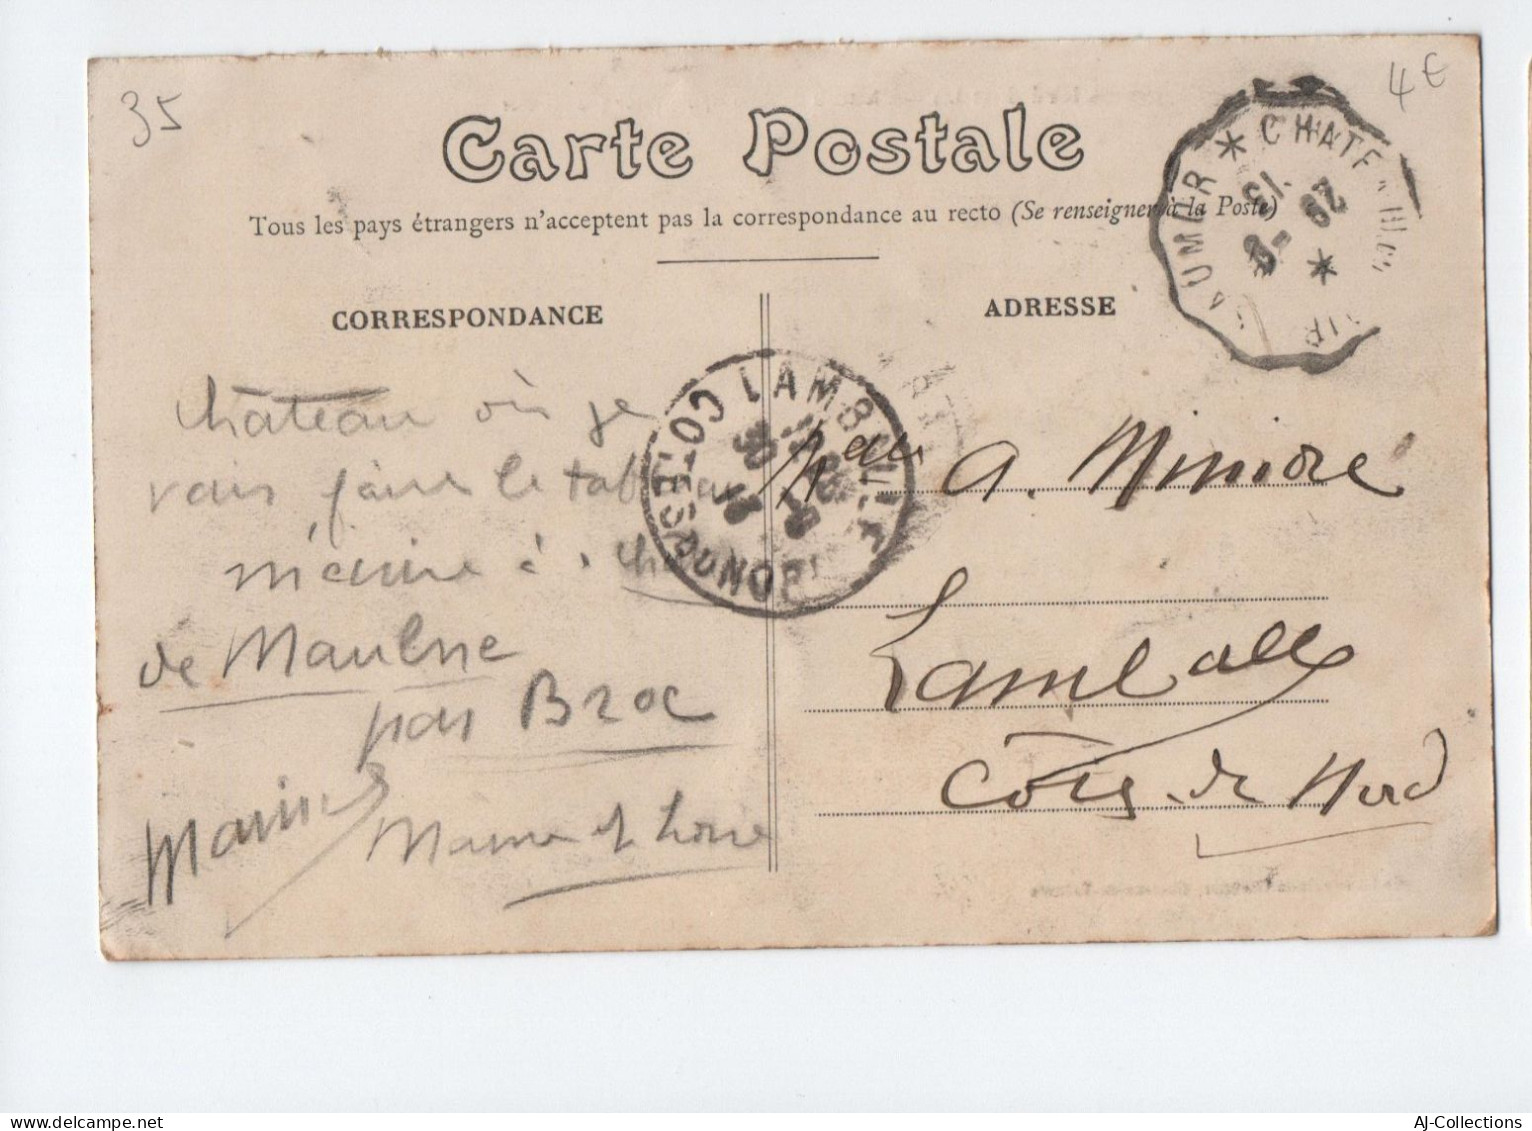 35
4 €
Carte Postale
Tous les pays étrangers n'acceptent pas la correspondance au recto (Se renseigner à la Poste)
CORRESPONDANCE
ADRESSE
SAUMUR * CHATE
29 - 9
13
*
LAMBALLE
COTES DU NORD
30 - 9
13
château où je
vais faire le tableau
même à
de Maulne
par Broc
Maine et Loire
A.
Lamballe
Côtes du Nord
AJ-Collections